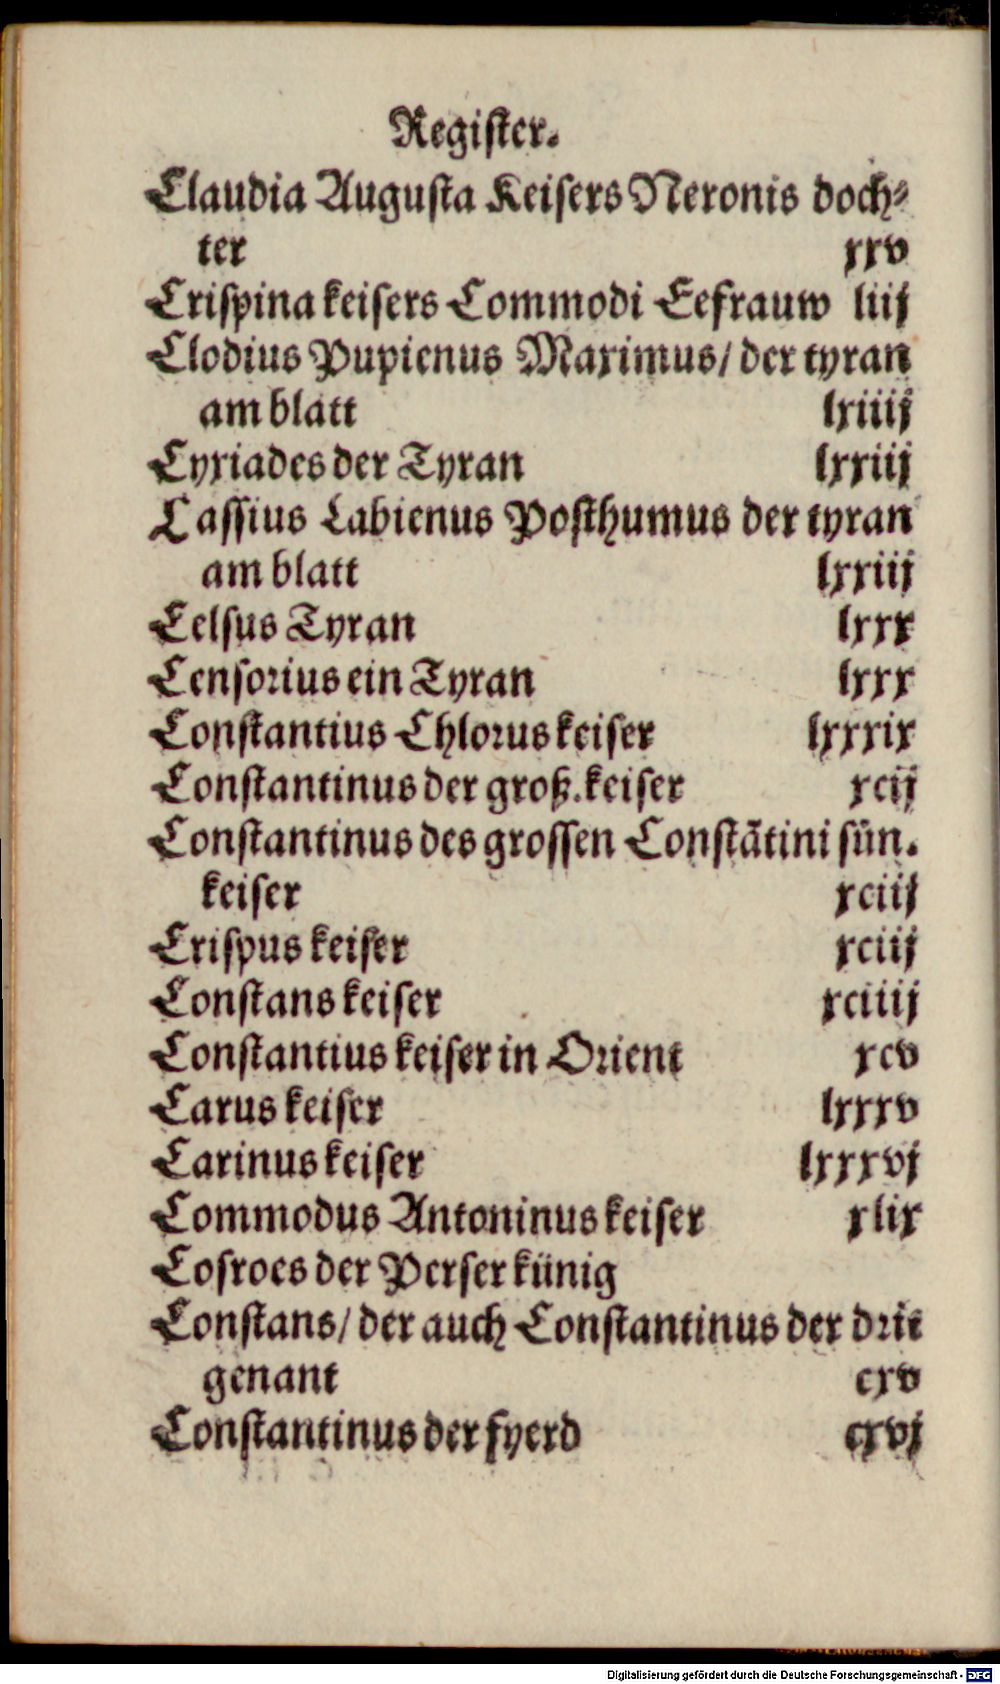 Register.
Claudia Augusta Keisers Neronis doch⸗
ter xxv
Crispina keisers Commodi Eefrauw liij
Clodius Pupienus Maximus/ der tyran
am blatt lxiiij
Cyriades der Tyran lxxiij
Cassius Labienus Posthumus der tyran
am blatt lxxiij
Celsus Tyran lxxx
Censorius ein Tyran lxxx
Constantius Chlorus keiser lxxxix
Constantinus der groß. keiser xcij
Constantinus des grossen Constātini sün.
keiser xciij
Crispus keiser xciij
Constans keiser xciiij
Constantius keiser in Orient xcv
Carus keiser lxxxv
Carinus keiser lxxxvj
Commodus Antoninus keiser xlix
Cosroes der Perser künig
Constans/ der auch Constantinus der drit
genant cxv
Constantinus der fyerd cxvj
Digitalisierung gefördert durch die Deutsche Forschungsgemeinschaft - DFG